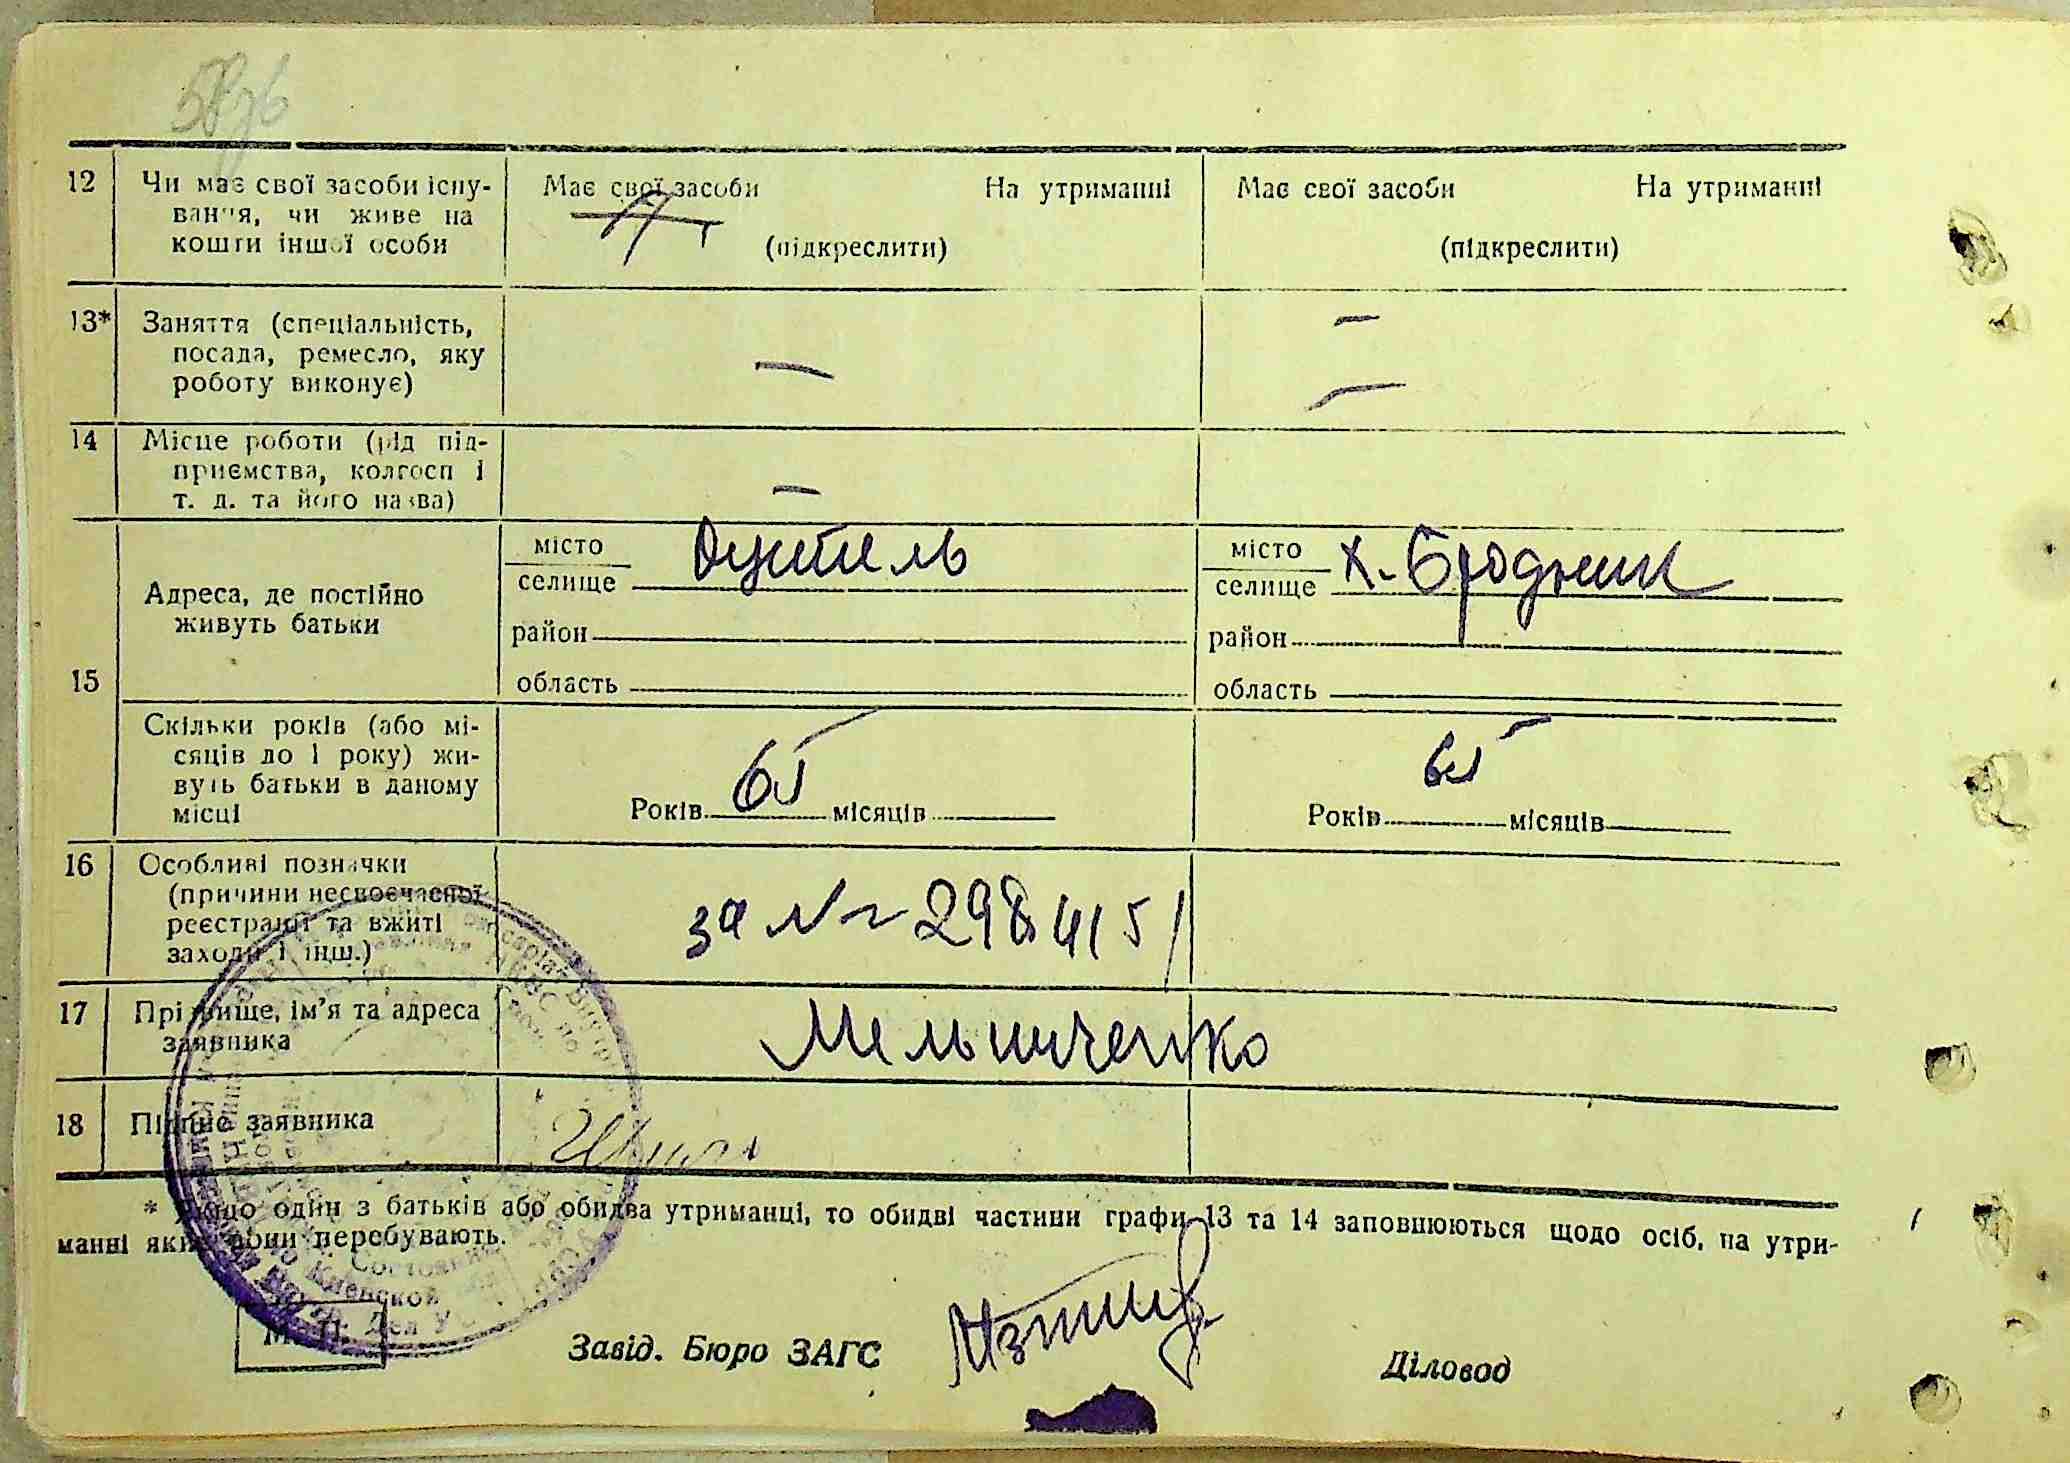 12 Чи має свої засоби існу-
вання, чи живе на
кошти іншої особи
Має свої засоби На утриманні
(підкреслити)
Має свої засоби На утриманні
(підкреслити)
13* Заняття (спеціальність,
посада, ремесло, яку
роботу виконує)
—
—
—
14 Місце роботи (рід під-
приємства, колгосп і
т. д. та його назва)
—
15 Адреса, де постійно
живуть батьки
місто
селище
район
область
місто х. Бродники
селище
район
область
Скільки років (або мі-
сяців до 1 року) жи-
вуть батьки в даному
місці
Років місяців
Років місяців
16 Особливі позначки
(причини несвоєчасної
реєстрації та вжиті
заходи і інш.)
за № 298415
17 Прізвище, ім'я та адреса
заявника
Мельниченко
18 Підпис заявника
* Якщо один з батьків або обидва утриманці, то обидві частини графи 13 та 14 заповнюються щодо осіб, на утри-
манні яких вони перебувають.
М. П.
Завід. Бюро ЗАГС
Діловод